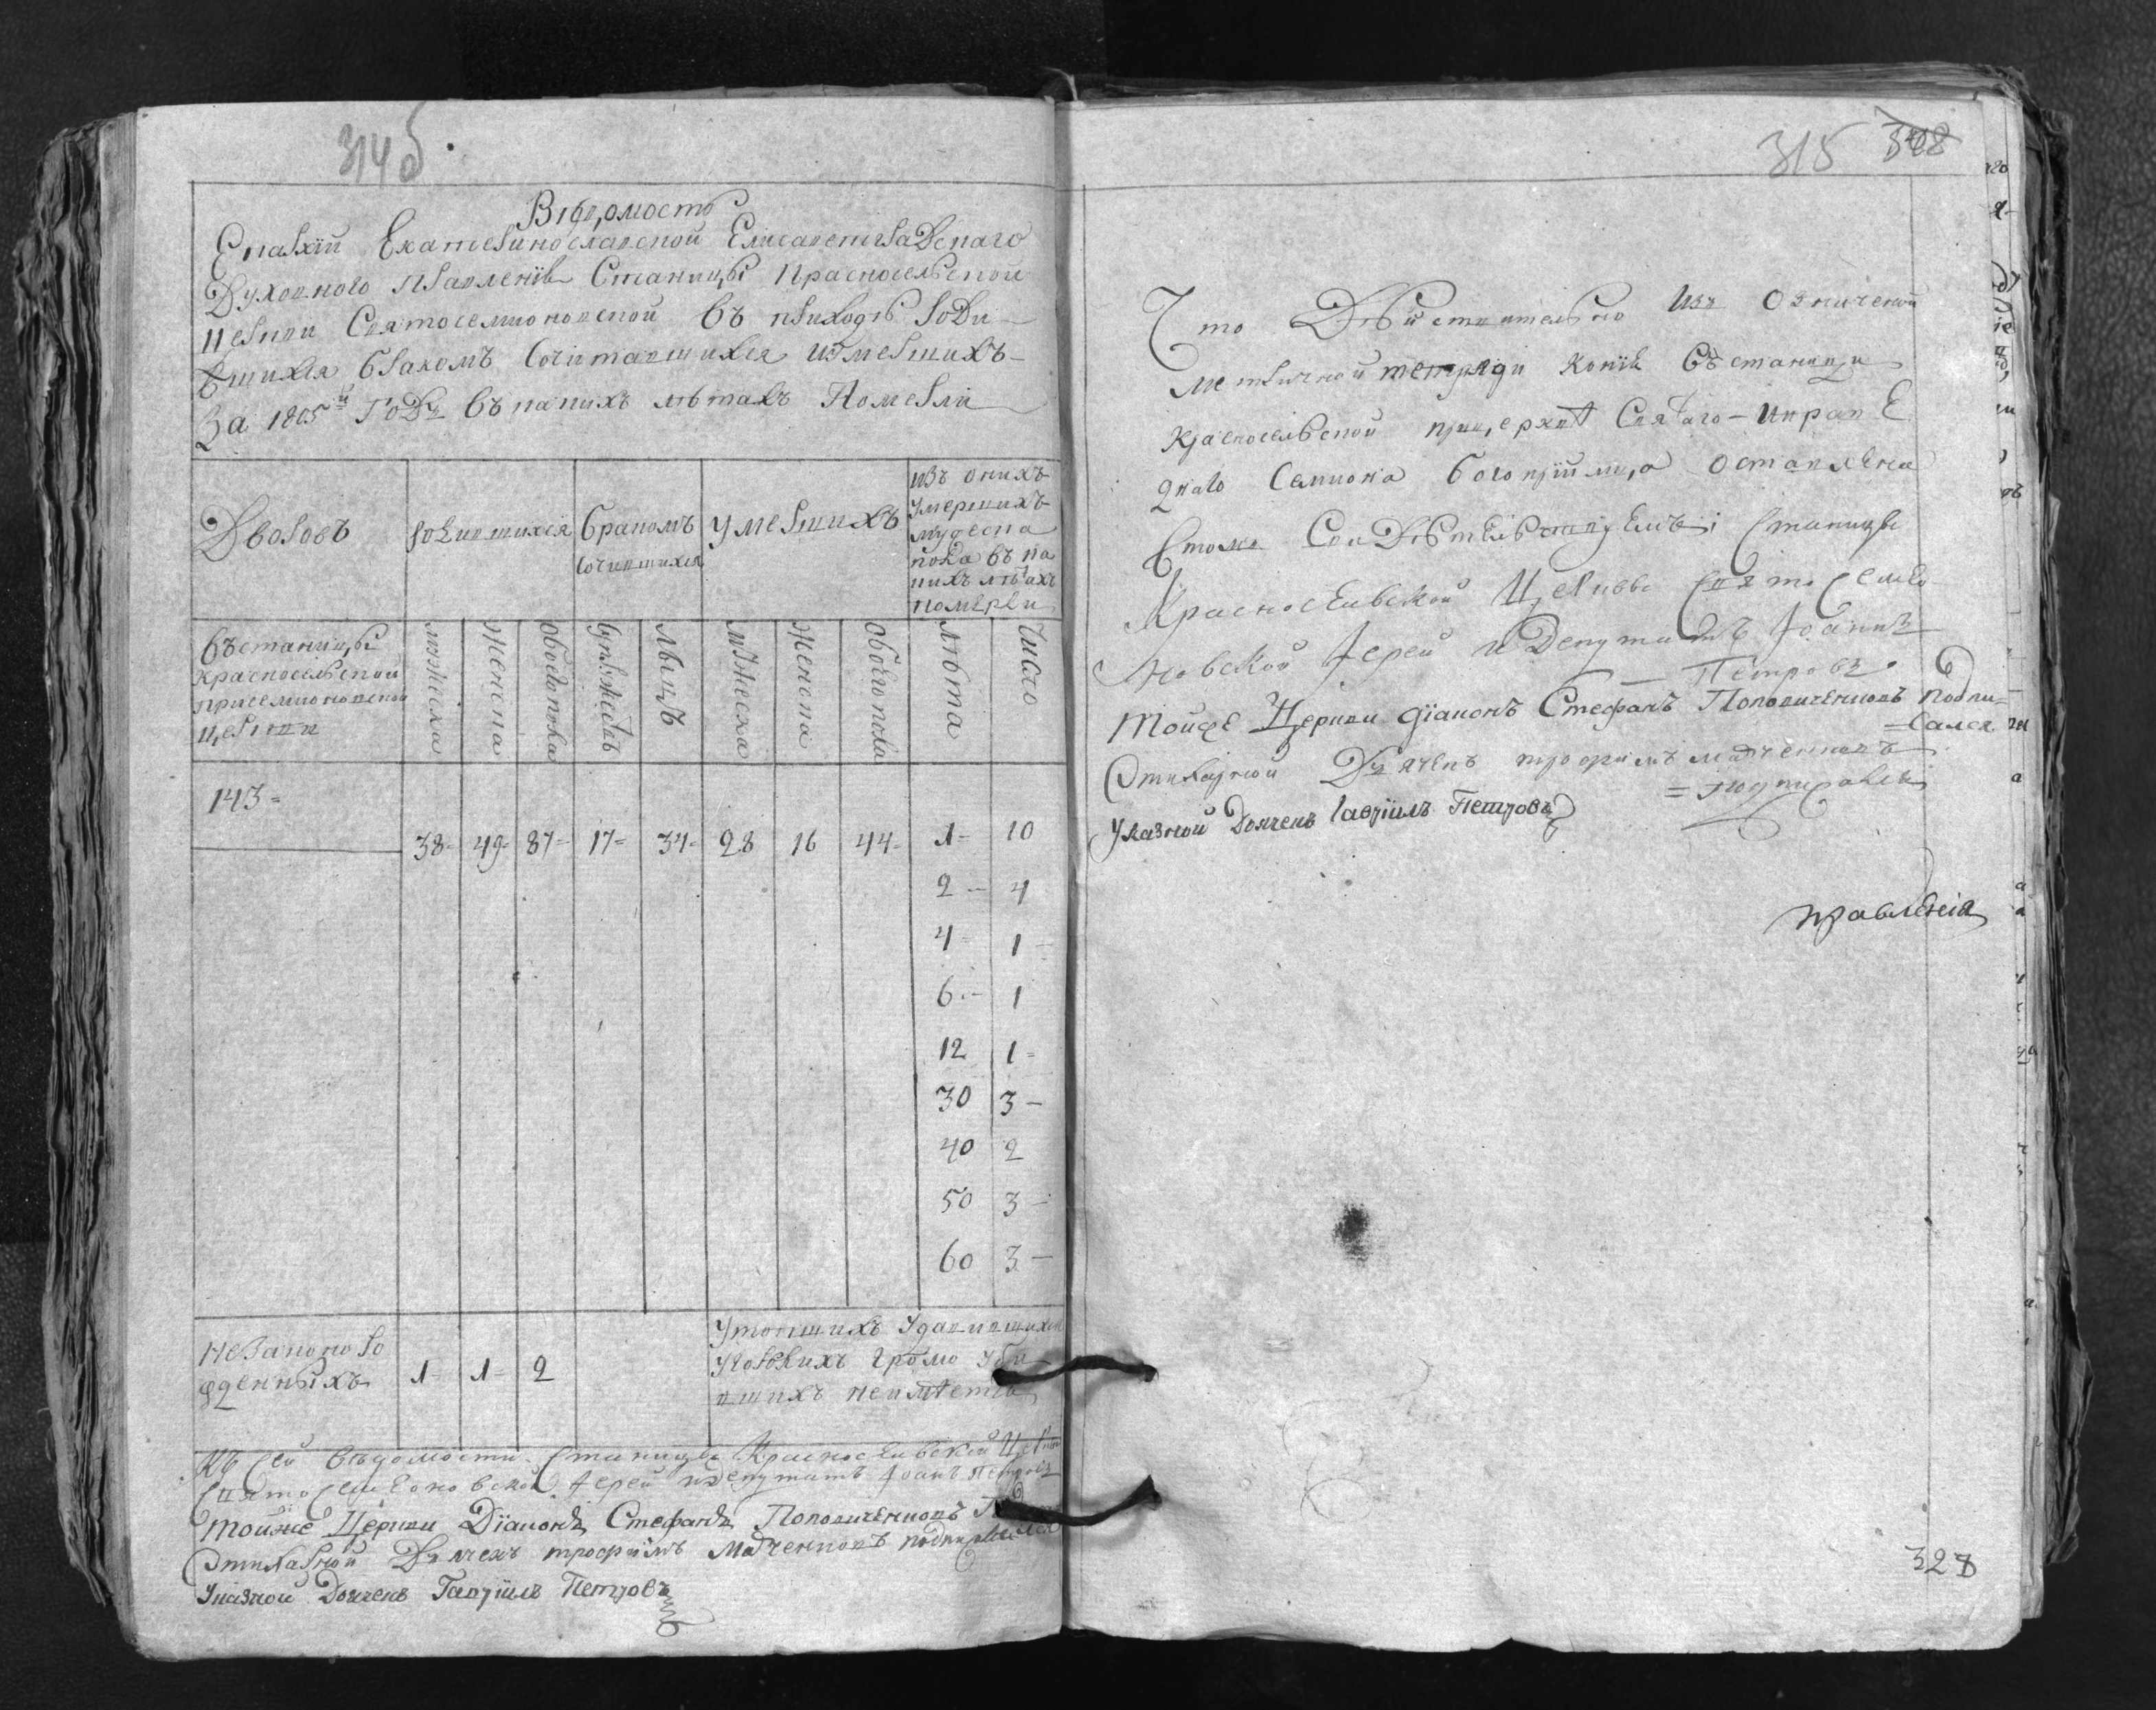 314б.
Вѣдомость
Епархіи Екатеринославской Елисаветградскаго
Духовного правленія Станицы Красносельской
церкви Святосемионовской въ приходѣ роди
вшихся бракомъ сочитавшихся измершихъ
За 1805й Годъ въ какихъ лѣтахъ Померли
Дворовъ
родившихся
бракомъ
сочитавшихся
умершихъ
изъ онихъ
умершихъ
мужеска
пола въ ка
кихъ лѣтахъ
померли
въ станицы
красносельской
присемионовской
церкви
мужеска
женска
обоего пола
супружествъ
лицъ
мужеска
женска
обоего пола
лѣта
число
143
38 49 87 17 34 28 16 44 1 10
2 4
4 1
6 1
12 1
30 3
40 2
50 3
60 3
Незаконо ро
жденныхъ
1 1 2
утопшихъ удавившихся
угорѣлихъ громо уби
вшихъ неимѣется
Къ сей вѣдомости Станицы Красносельской Церкви
Святосемеоновской Іерей и депутатъ Іоаннъ Петровъ
Тойже Церкви Діаконъ Стефанъ Поповиченковъ
Стихарной Дьячекъ трофимъ Марченковъ подписался
Указной Дьячекъ Гавріилъ Петровъ
315 328
Что Дѣйствительно изъ Означеной
метричной тетради копія въ станици
красносельской при церкви Святаго и прав Е
днаго Семиона богопріимца оставлена
Втомъ Свидѣтельствуемъ Станицы
Красносельской Церквы Святосемео
новской Іерей и Депутатъ Іоаннъ
Петровъ
Тойже Церкви діаконъ Стефанъ Поповиченковъ подпи=
=сался
Стихарной Дьячекъ трофимъ марченковъ
= подписался
Указной Дьячекъ Гавріилъ Петровъ
правленія
328